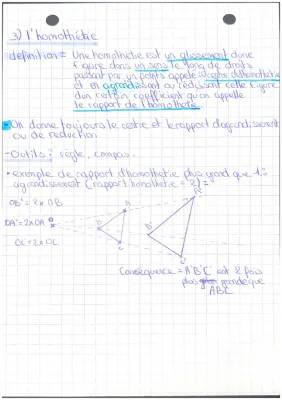 3) l'homothétie
définition = Une homothétie est un glissement d'une
figure dans un sens le long de droites
passant par un points appelé centre d'homothétie
et en agrandissant ou réduisant cette figure
d'un certain coefficient qu'on appelle
le rapport de l'homothétie
On donne toujours le centre et le rapport d'agrandissement
ou de réduction.
- Outils : règle, compas.
• exemple de rapport d'homothétie plus grand que 1 =
agrandissement (rapport homothétie = 2) =
OB' = 2 x OB
OA' = 2 x OA
OC' = 2 x OC
A
A'
B
B'
C
C'
Conséquence = A'B'C' est 2 fois
plus grande que
ABC